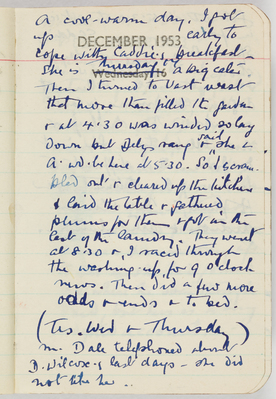 A cool-warm day. I got
up early to
DECEMBER 1953
cope with Caddie's breakfast
She is Thursday 17 a big eater.
Wednesday 16
Then I turned to vast wash
that more than filled the garden
& at 4.30 was winded so lay
down but Delys rang & said she &
A. wd. be here at 5.30. So I scram-
bled out & cleared up the kitchen
& laid the table & gathered
plums for them & got in the
last of the laundry. They went
at 8.30 & I raced through
the washing-up for 9 o'clock
news. Then did a few more
odds & ends & to bed.
(Tes. Wed & Thursday)
M. Dale telephoned about
D. Wilcox's last days - she did
not like her..